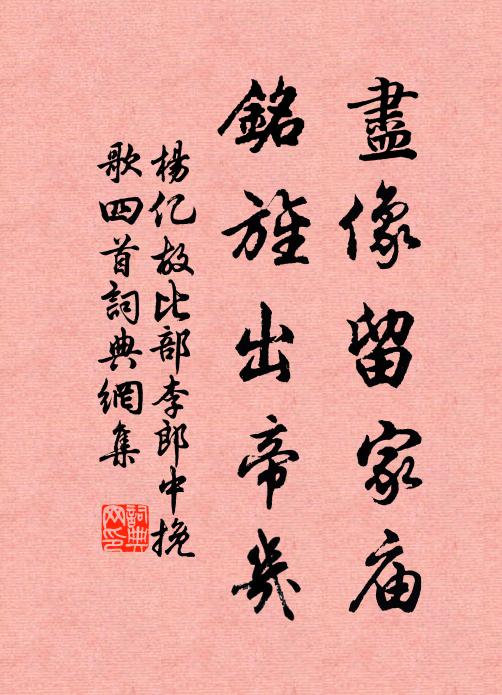 盡像留家庙
銘旌出帝畿
楊亿故比部李郎中挽
歌四首詞典網集
詞典网印